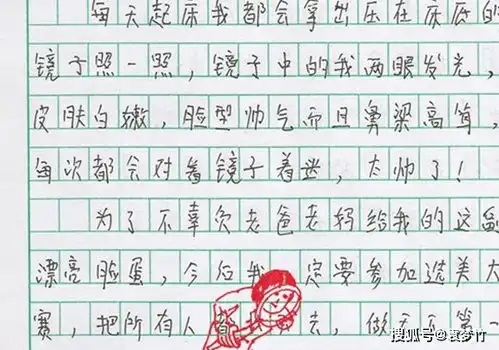 每天起床我都会拿出压在床底的
镜子照一照，镜子中的我两眼发光，
皮肤白嫩，脸型帅气而且鼻梁高耸，
每次都会对着镜子着迷，太帅了！
为了不辜负老爸老妈给我的这副
漂亮脸蛋，今后我一定要参加选美大
赛，把所有人都 去，做天下第一
搜狐号@袁梦竹